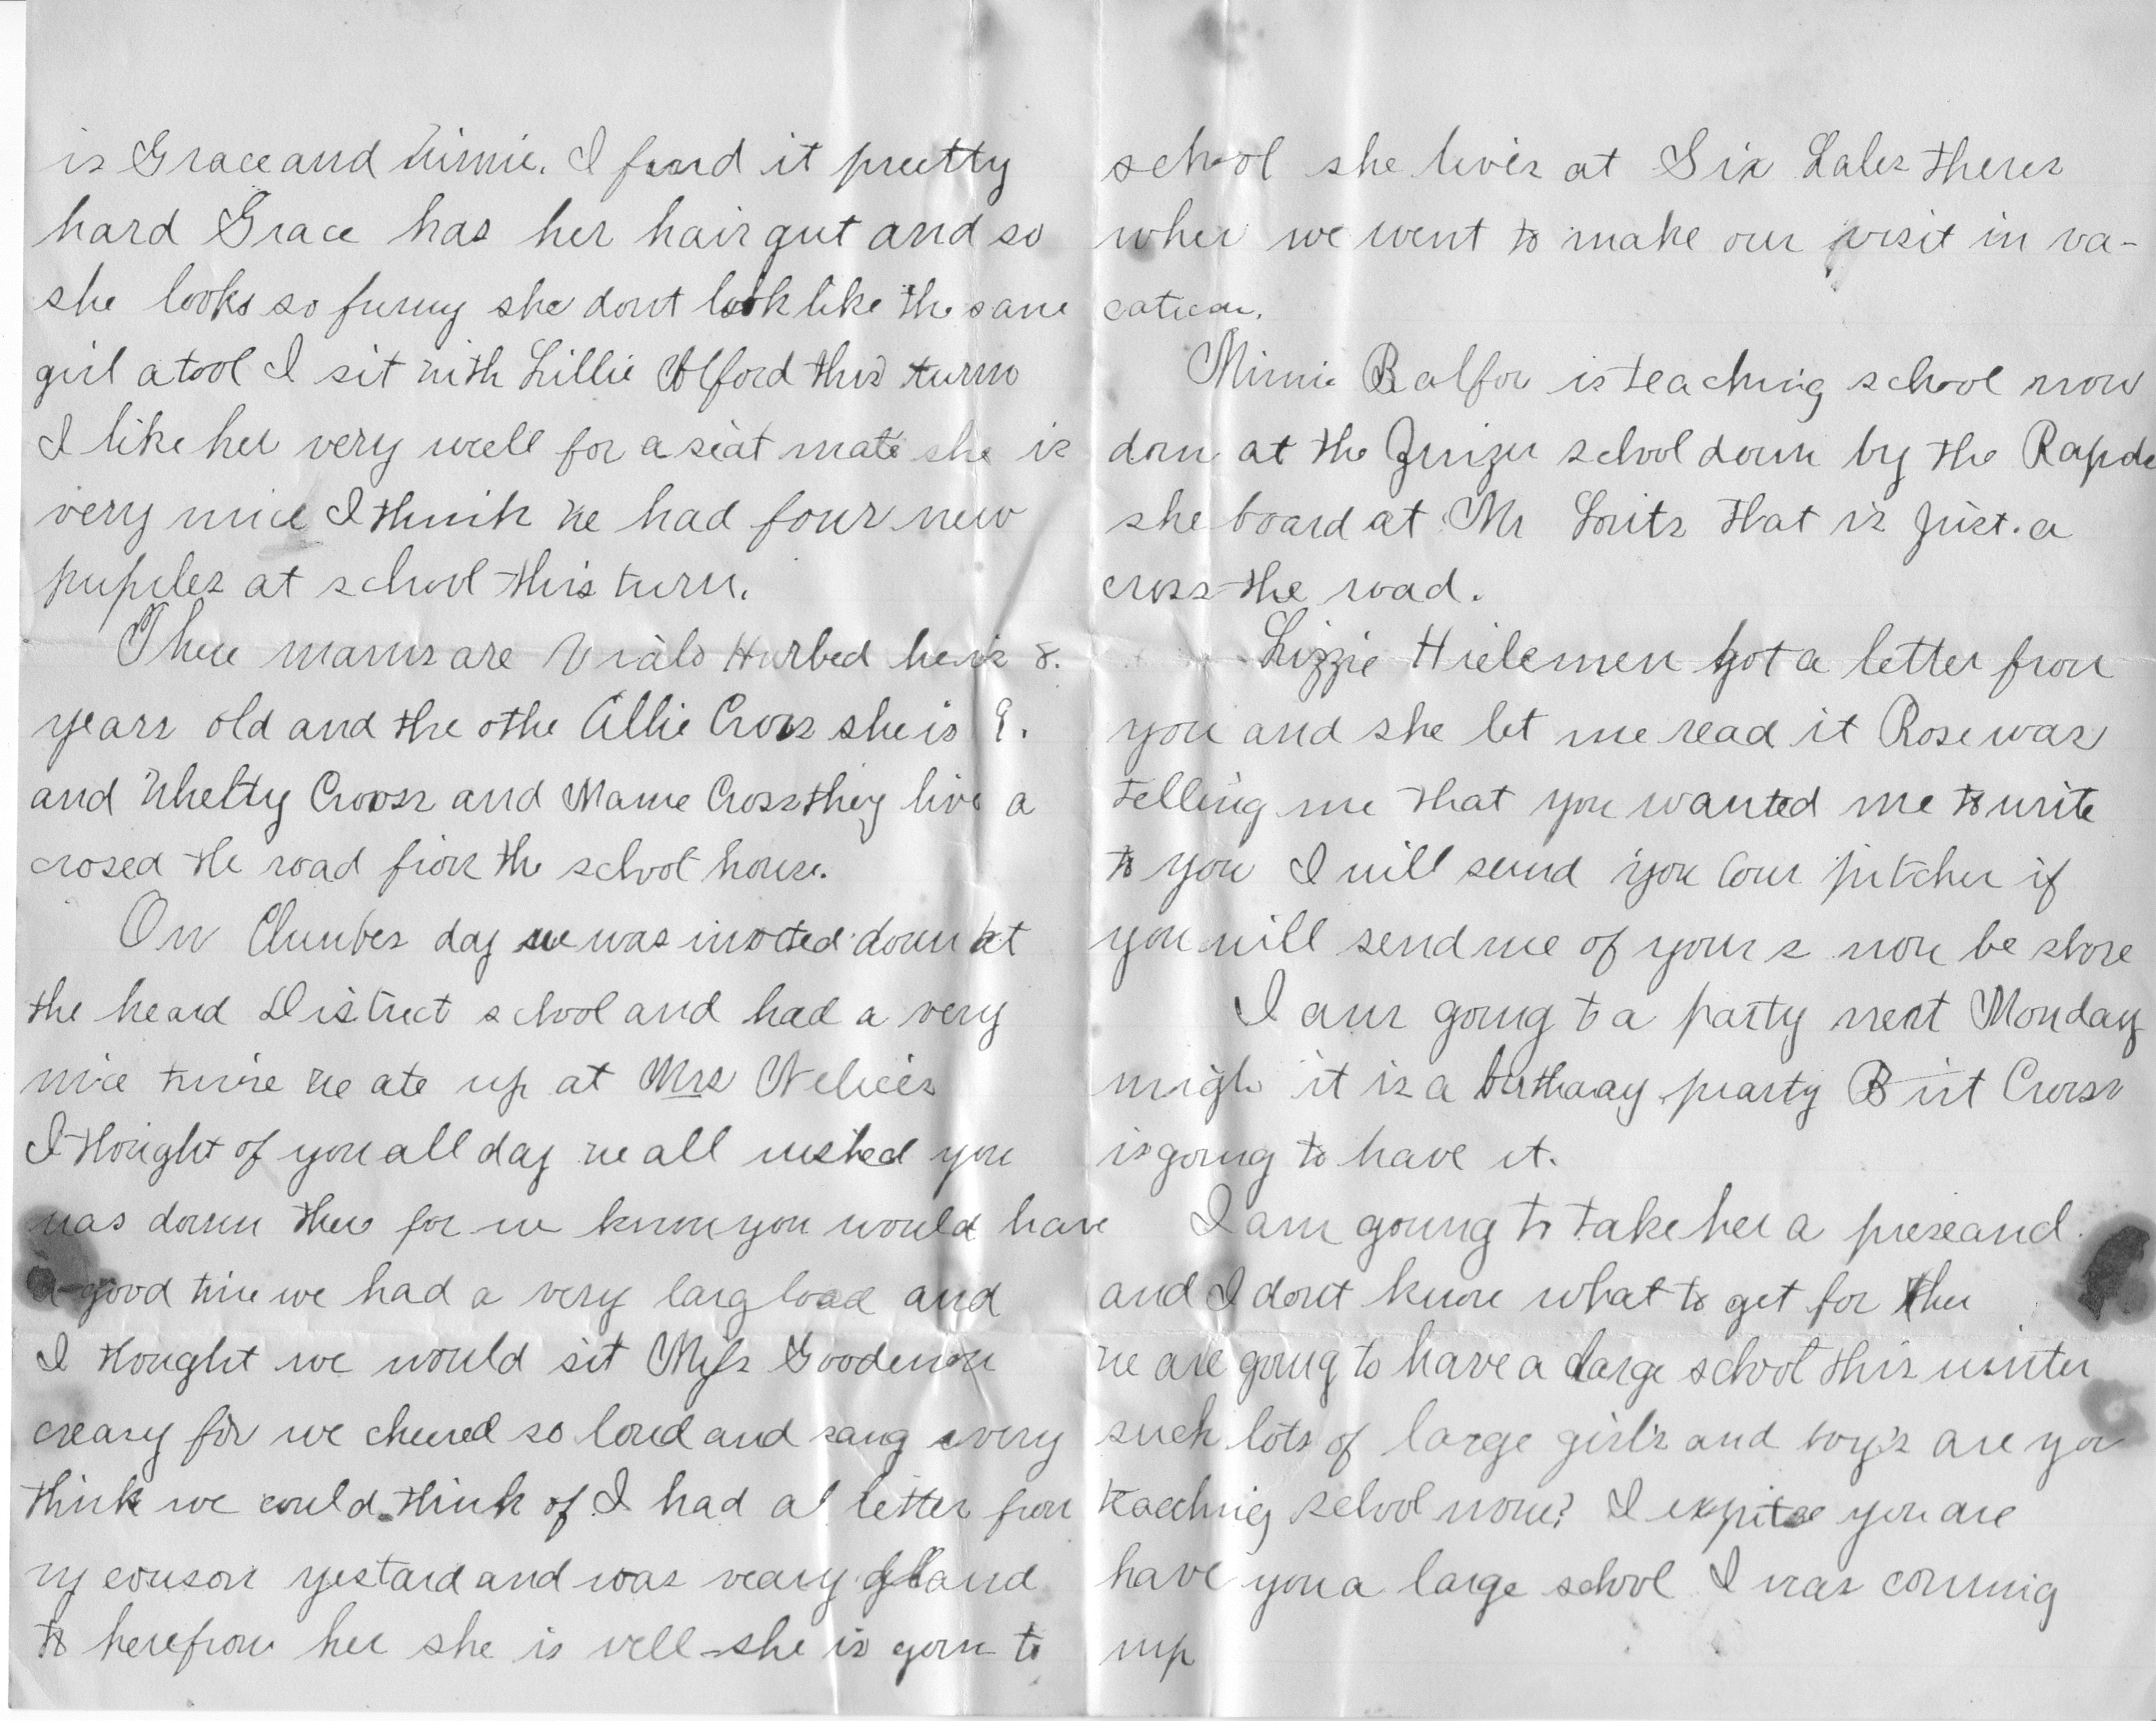 is Grace and Minnie. I find it pretty
hard Grace has her hair gut and so
she looks so funny she dont look like the same
girl atool I sit with Lillie Alford this turm
I like her very well for a seat mate she is
very nice I think we had four new
pupiles at school this turn.
There mams are Hurbed he is 8.
years old and the othe Allie Cross she is 9.
and Cross and Mame Cross they live a
crosed the road from the school house.
On day we was invited down at
the heard District school and had a very
nice time we ate up at Mrs
I thought of you all day we all wished you
was down ther for we know you would have
a good time we had a very larg load and
I thought we would sit Miss Goodenow
creasy for we cheered so loud and sang every
think we could think of I had a letter from
my couson yestard and was veary gland
to here from her she is well she is gorn to
school she lives at Six Lakes theres
wher we went to make our visit in va-
cation.
Minnie Balfor is teaching school now
down at the school down by the Rapids
she board at Mr that is just. a
cross the road.
Lizzie Hielemen got a letter from
you and she let me read it Rose was
telling me that you wanted me to write
to you I will send you our pitcher if
you will send me of yours now be shore
I am going to a party next Monday
nigh it is a birthday party Birt Cross
is going to have it.
I am going to take her a preseand.
and I dont know what to get for her
we are going to have a large school this winter
such lots of large girl's and boy's are you
teaching school now? I you are
have you a large school I was coming
up